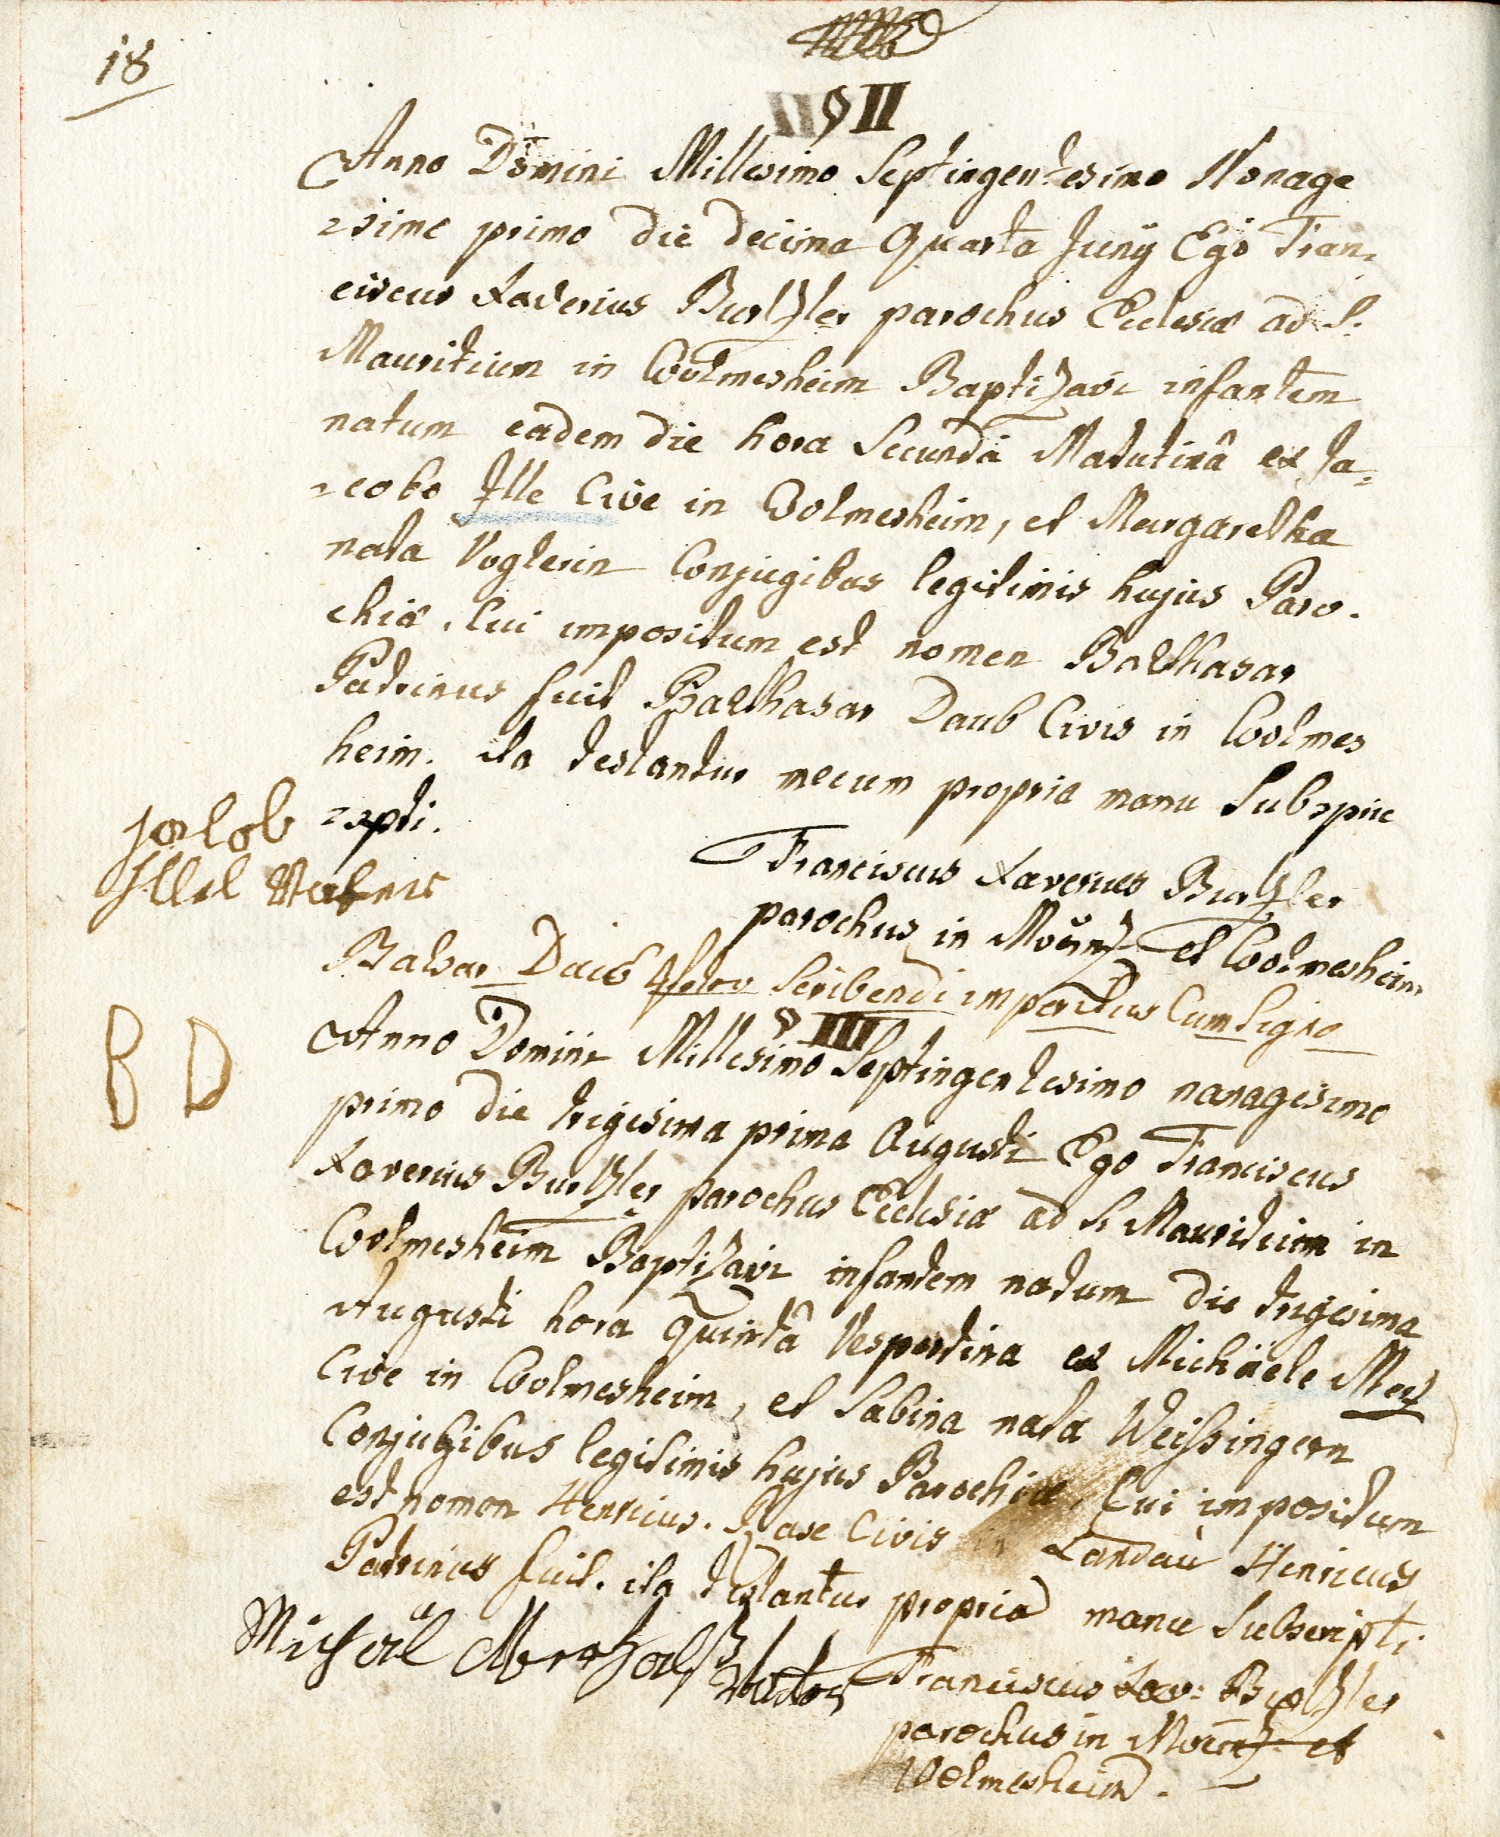 18
§ II
Anno Domini Millesimo Septingentesimo Nonage
=simo primo die decima Quarta Junij Ego Fran=
ciscus Xaverius Burtzler parochus Ecclesiæ ad S.
Mauritium in Wolmesheim Baptizavi infantem
natum eadem die hora Secundâ Matutinâ ex Ja=
=cobo Ille Cive in Wolmesheim, et Margaretha
nata Voglerin Conjugibus legitimis hujus Paro-
chiæ, Cui impositum est nomen Balthasar
Patrinus fuit Balthasar Daub Civis in Wolmes
heim. ita testantur mecum propria manu Subscri
=pti.
Jacob
Illel Vater
Franciscus Xaverius Burtzler
parochus in et Wolmesheim
Balsar Daub Scribendi imperitus Cum Signo
B D
§ III
Anno Domini Millesimo Septingentesimo nonagesimo
primo die trigesima prima Augusti Ego Franciscus
Xaverius Burtzler parochus Ecclesiæ ad S. Mauritium in
Wolmesheim Baptizavi infantem natum die trigesima
Augusti hora quintâ Vespertina ex Michäele
Cive in Wolmesheim, et Sabina nata Weissingern
Conjugibus legitimis hujus Parochiæ, Cui impositum
est nomen Henricus. Civis in Landau Henricus
Patrinus fuit. ita testantur propria manu Subscripti
Michäel
Franciscus Xav: Burtzler
parochus in et
Wolmesheim.